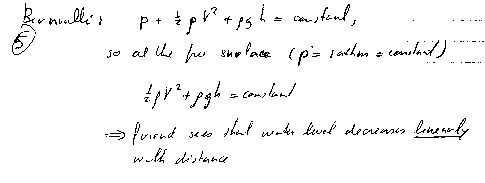 Bernoulli: p + ½ ρ V² + ρgh = constant,
⑤ so at the free surface (p = 1 athm = constant)
½ ρV² + ρgh = constant
⇒ friend sees that water level decreases linearly
with distance